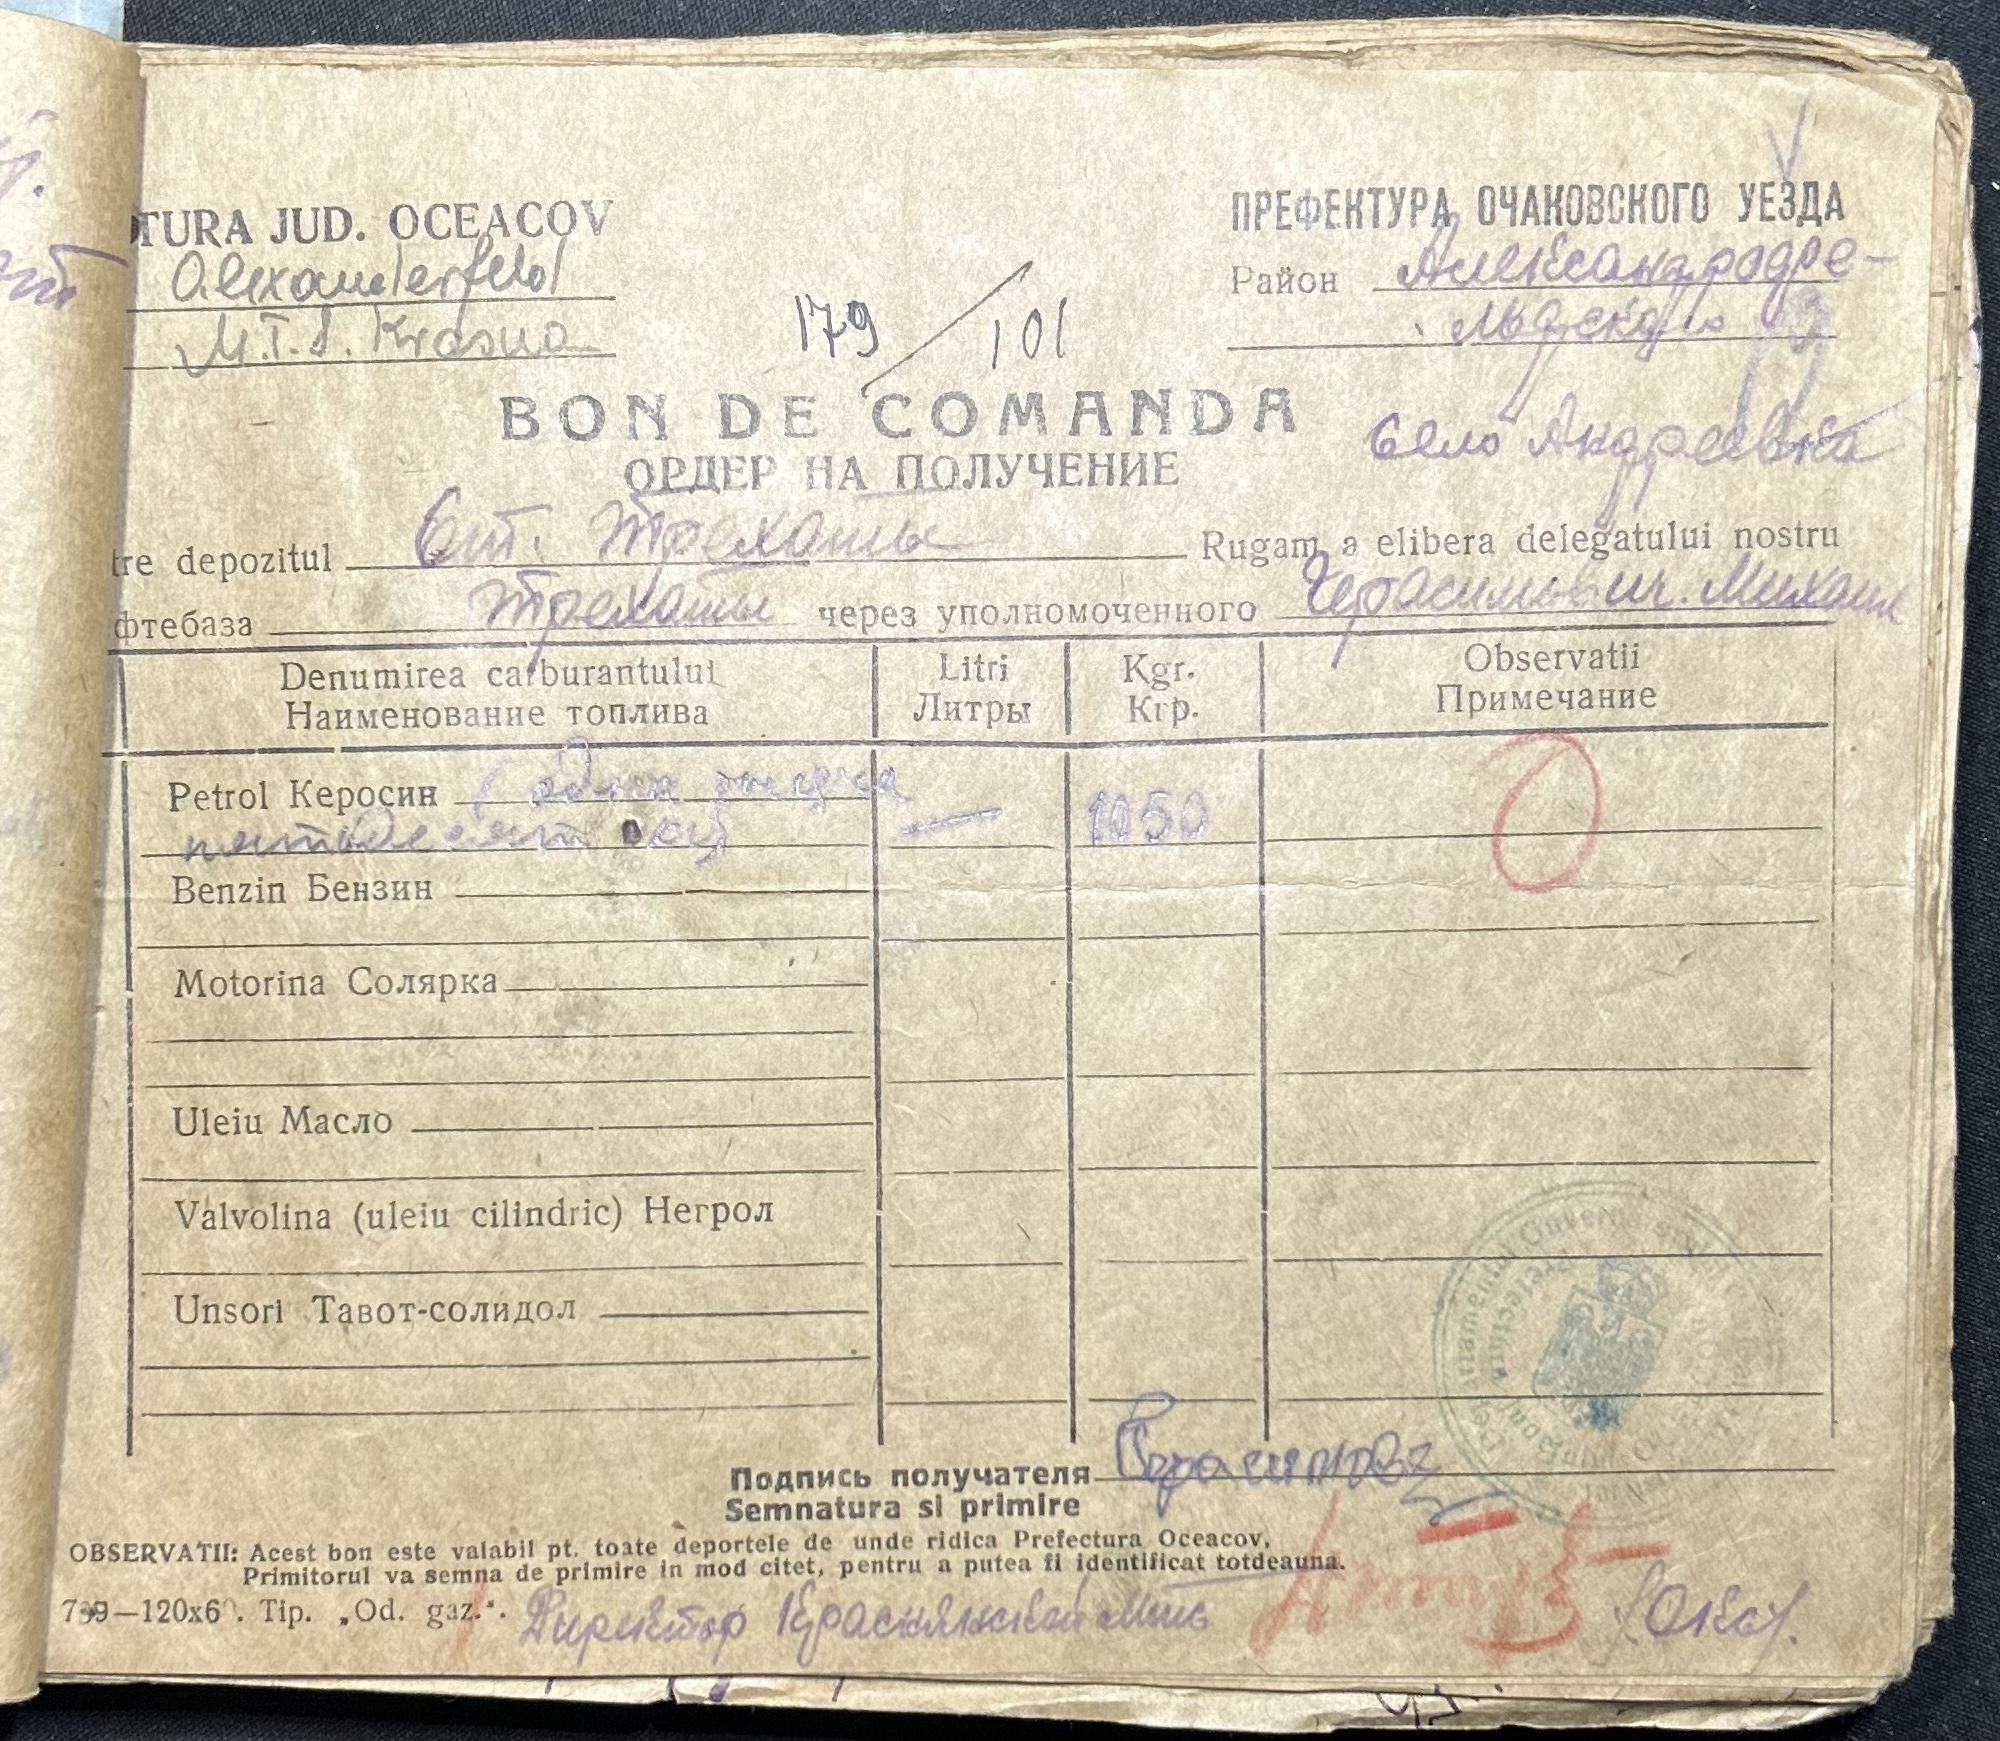 TURA JUD. OCEACOV
Alexanderfeld
M.T.S. Krasna
179 / 101
ПРЕФЕКТУРА ОЧАКОВСКОГО УЕЗДА
Район Александрофе-
льдского
BON DE COMANDA
ОРДЕР НА ПОЛУЧЕНИЕ
село Андреевка
tre depozitul Ст. Трехаты Rugam a elibera delegatului nostru
фтебаза Трехаты через уполномоченного Герасимович Михаил
Denumirea carburantului Litri Kgr. Observatii
Наименование топлива Литры Кгр. Примечание
Petrol Керосин (одна тысяча
пятьдесят кг) — 1050
Benzin Бензин
Motorina Солярка
Uleiu Масло
Valvolina (uleiu cilindric) Негрол
Unsori Тавот-солидол
Подпись получателя
Semnatura si primire
OBSERVATII: Acest bon este valabil pt. toate deportele de unde ridica Prefectura Oceacov,
Primitorul va semna de primire in mod citet, pentru a putea fi identificat totdeauna.
739—120x6 . Tip. „Od. gaz.".
Директор Краснянской Мтс